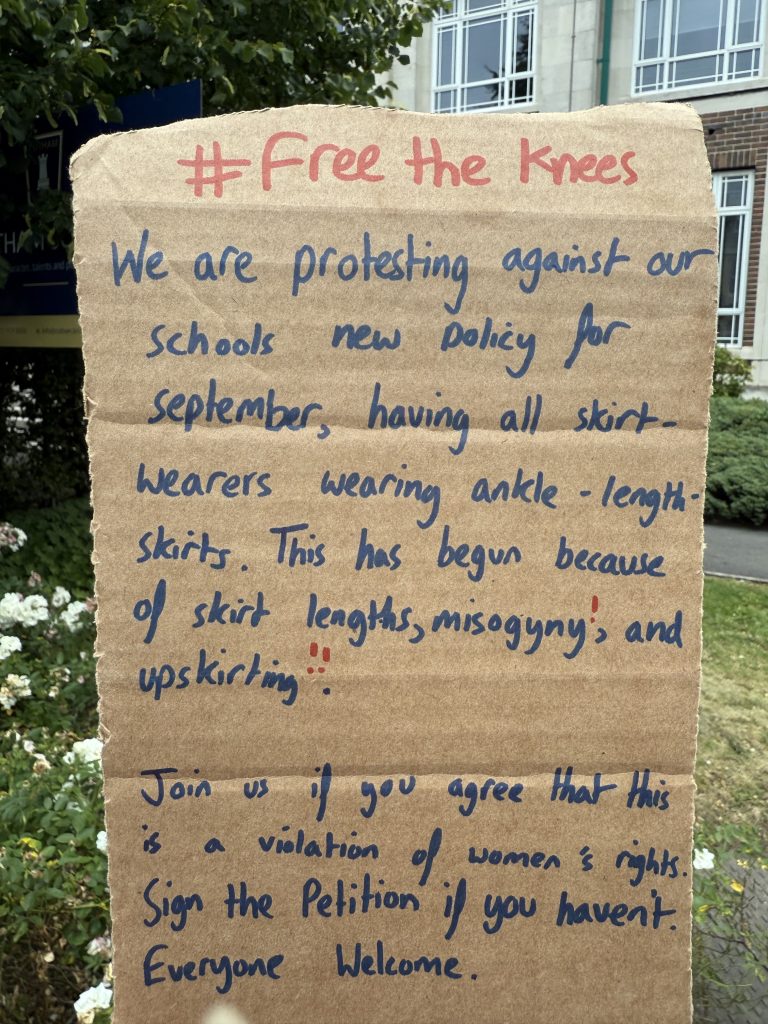 #Free the Knees
We are protesting against our
schools new policy for
september, having all skirt-
wearers wearing ankle-length-
skirts. This has begun because
of skirt lengths, misogyny!, and
upskirting!!.
Join us if you agree that this
is a violation of women's rights.
Sign the Petition if you haven't.
Everyone Welcome.